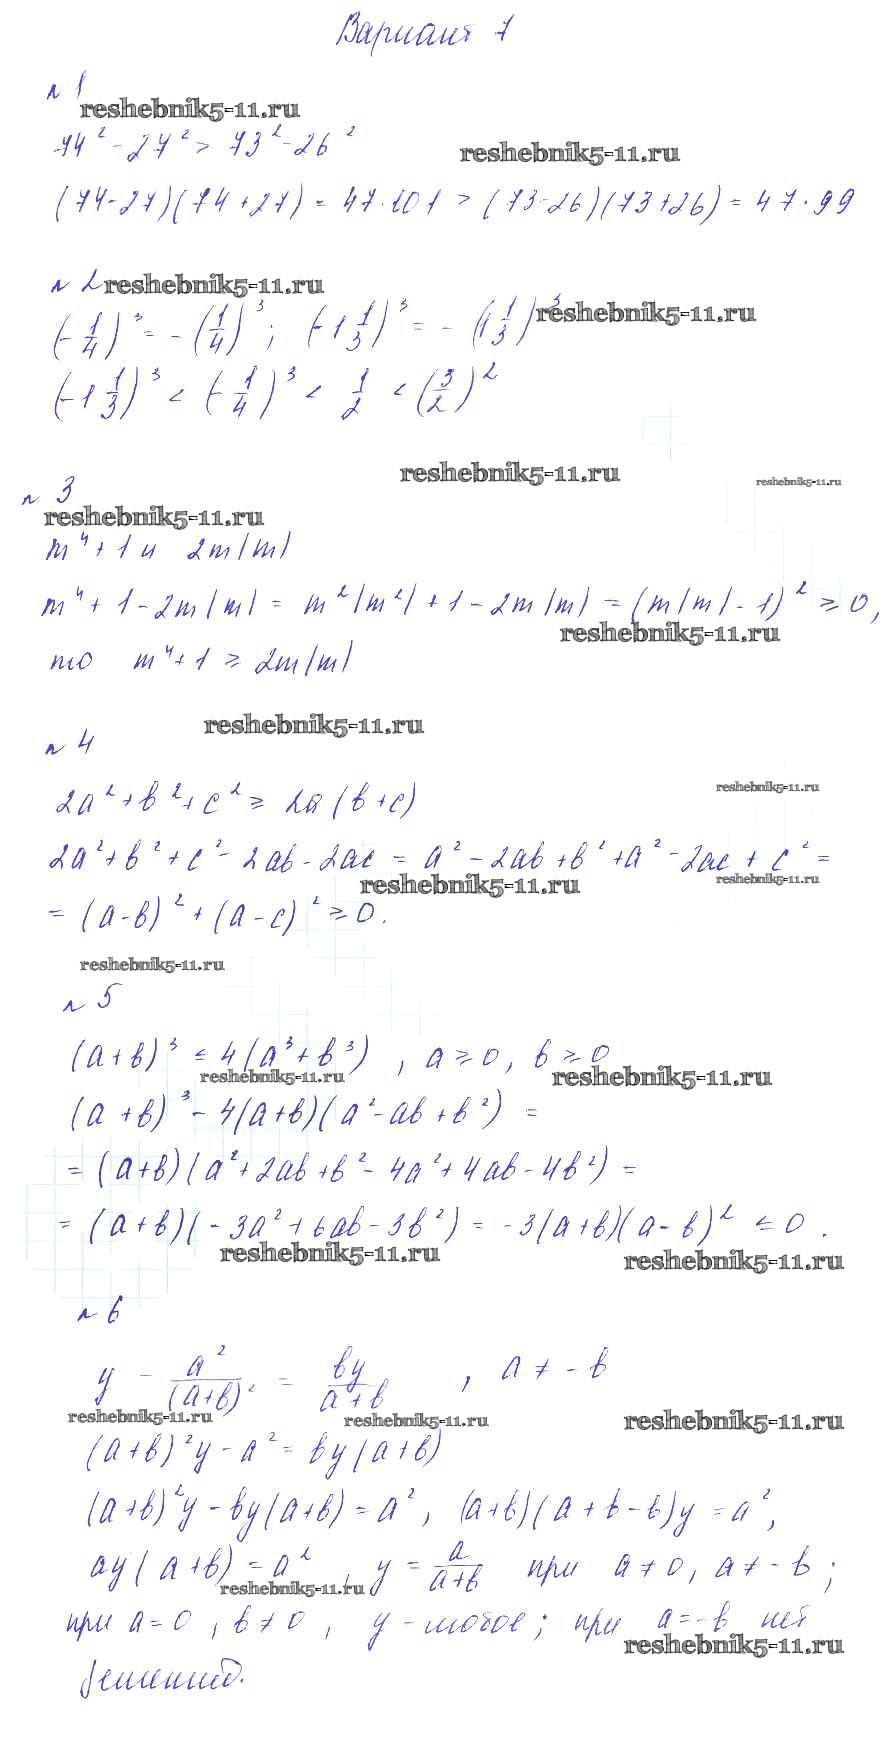 Вариант 7
№ 1
reshebnik5-11.ru
74² - 27² > 73² - 26²
reshebnik5-11.ru
(74-27)(74+27) = 47·101 > (73-26)(73+26) = 47·99
№ 2 reshebnik5-11.ru
(-1/4)³ = -(1/4)³; (-1 1/3)³ = -(1 1/3)³
reshebnik5-11.ru
(-1 1/3)³ < (-1/4)³ < 1/2 < (3/2)²
reshebnik5-11.ru
reshebnik5-11.ru
№ 3
reshebnik5-11.ru
m⁴ + 1 и 2m|m|
m⁴ + 1 - 2m|m| = m²|m²| + 1 - 2m|m| = (m|m| - 1)² ⩾ 0,
reshebnik5-11.ru
то m⁴ + 1 ⩾ 2m|m|
reshebnik5-11.ru
№ 4
reshebnik5-11.ru
2a² + b² + c² ⩾ 2a(b+c)
2a² + b² + c² - 2ab - 2ac = a² - 2ab + b² + a² - 2ac + c² =
reshebnik5-11.ru
reshebnik5-11.ru
= (a-b)² + (a-c)² ⩾ 0.
reshebnik5-11.ru
№ 5
(a+b)³ ⩽ 4(a³+b³), a ⩾ 0, b ⩾ 0
reshebnik5-11.ru
reshebnik5-11.ru
(a+b)³ - 4(a+b)(a² - ab + b²) =
= (a+b)(a² + 2ab + b² - 4a² + 4ab - 4b²) =
= (a+b)(-3a² + 6ab - 3b²) = -3(a+b)(a-b)² ⩽ 0.
reshebnik5-11.ru
reshebnik5-11.ru
№ 6
y - a²/(a+b)² = by/(a+b), a ≠ -b
reshebnik5-11.ru
reshebnik5-11.ru
reshebnik5-11.ru
(a+b)²y - a² = by(a+b)
(a+b)²y - by(a+b) = a², (a+b)(a+b-b)y = a²,
ay(a+b) = a², y = a/(a+b) при a ≠ 0, a ≠ -b;
reshebnik5-11.ru
при a = 0, b ≠ 0, y - любое; при a = -b нет
reshebnik5-11.ru
решений.